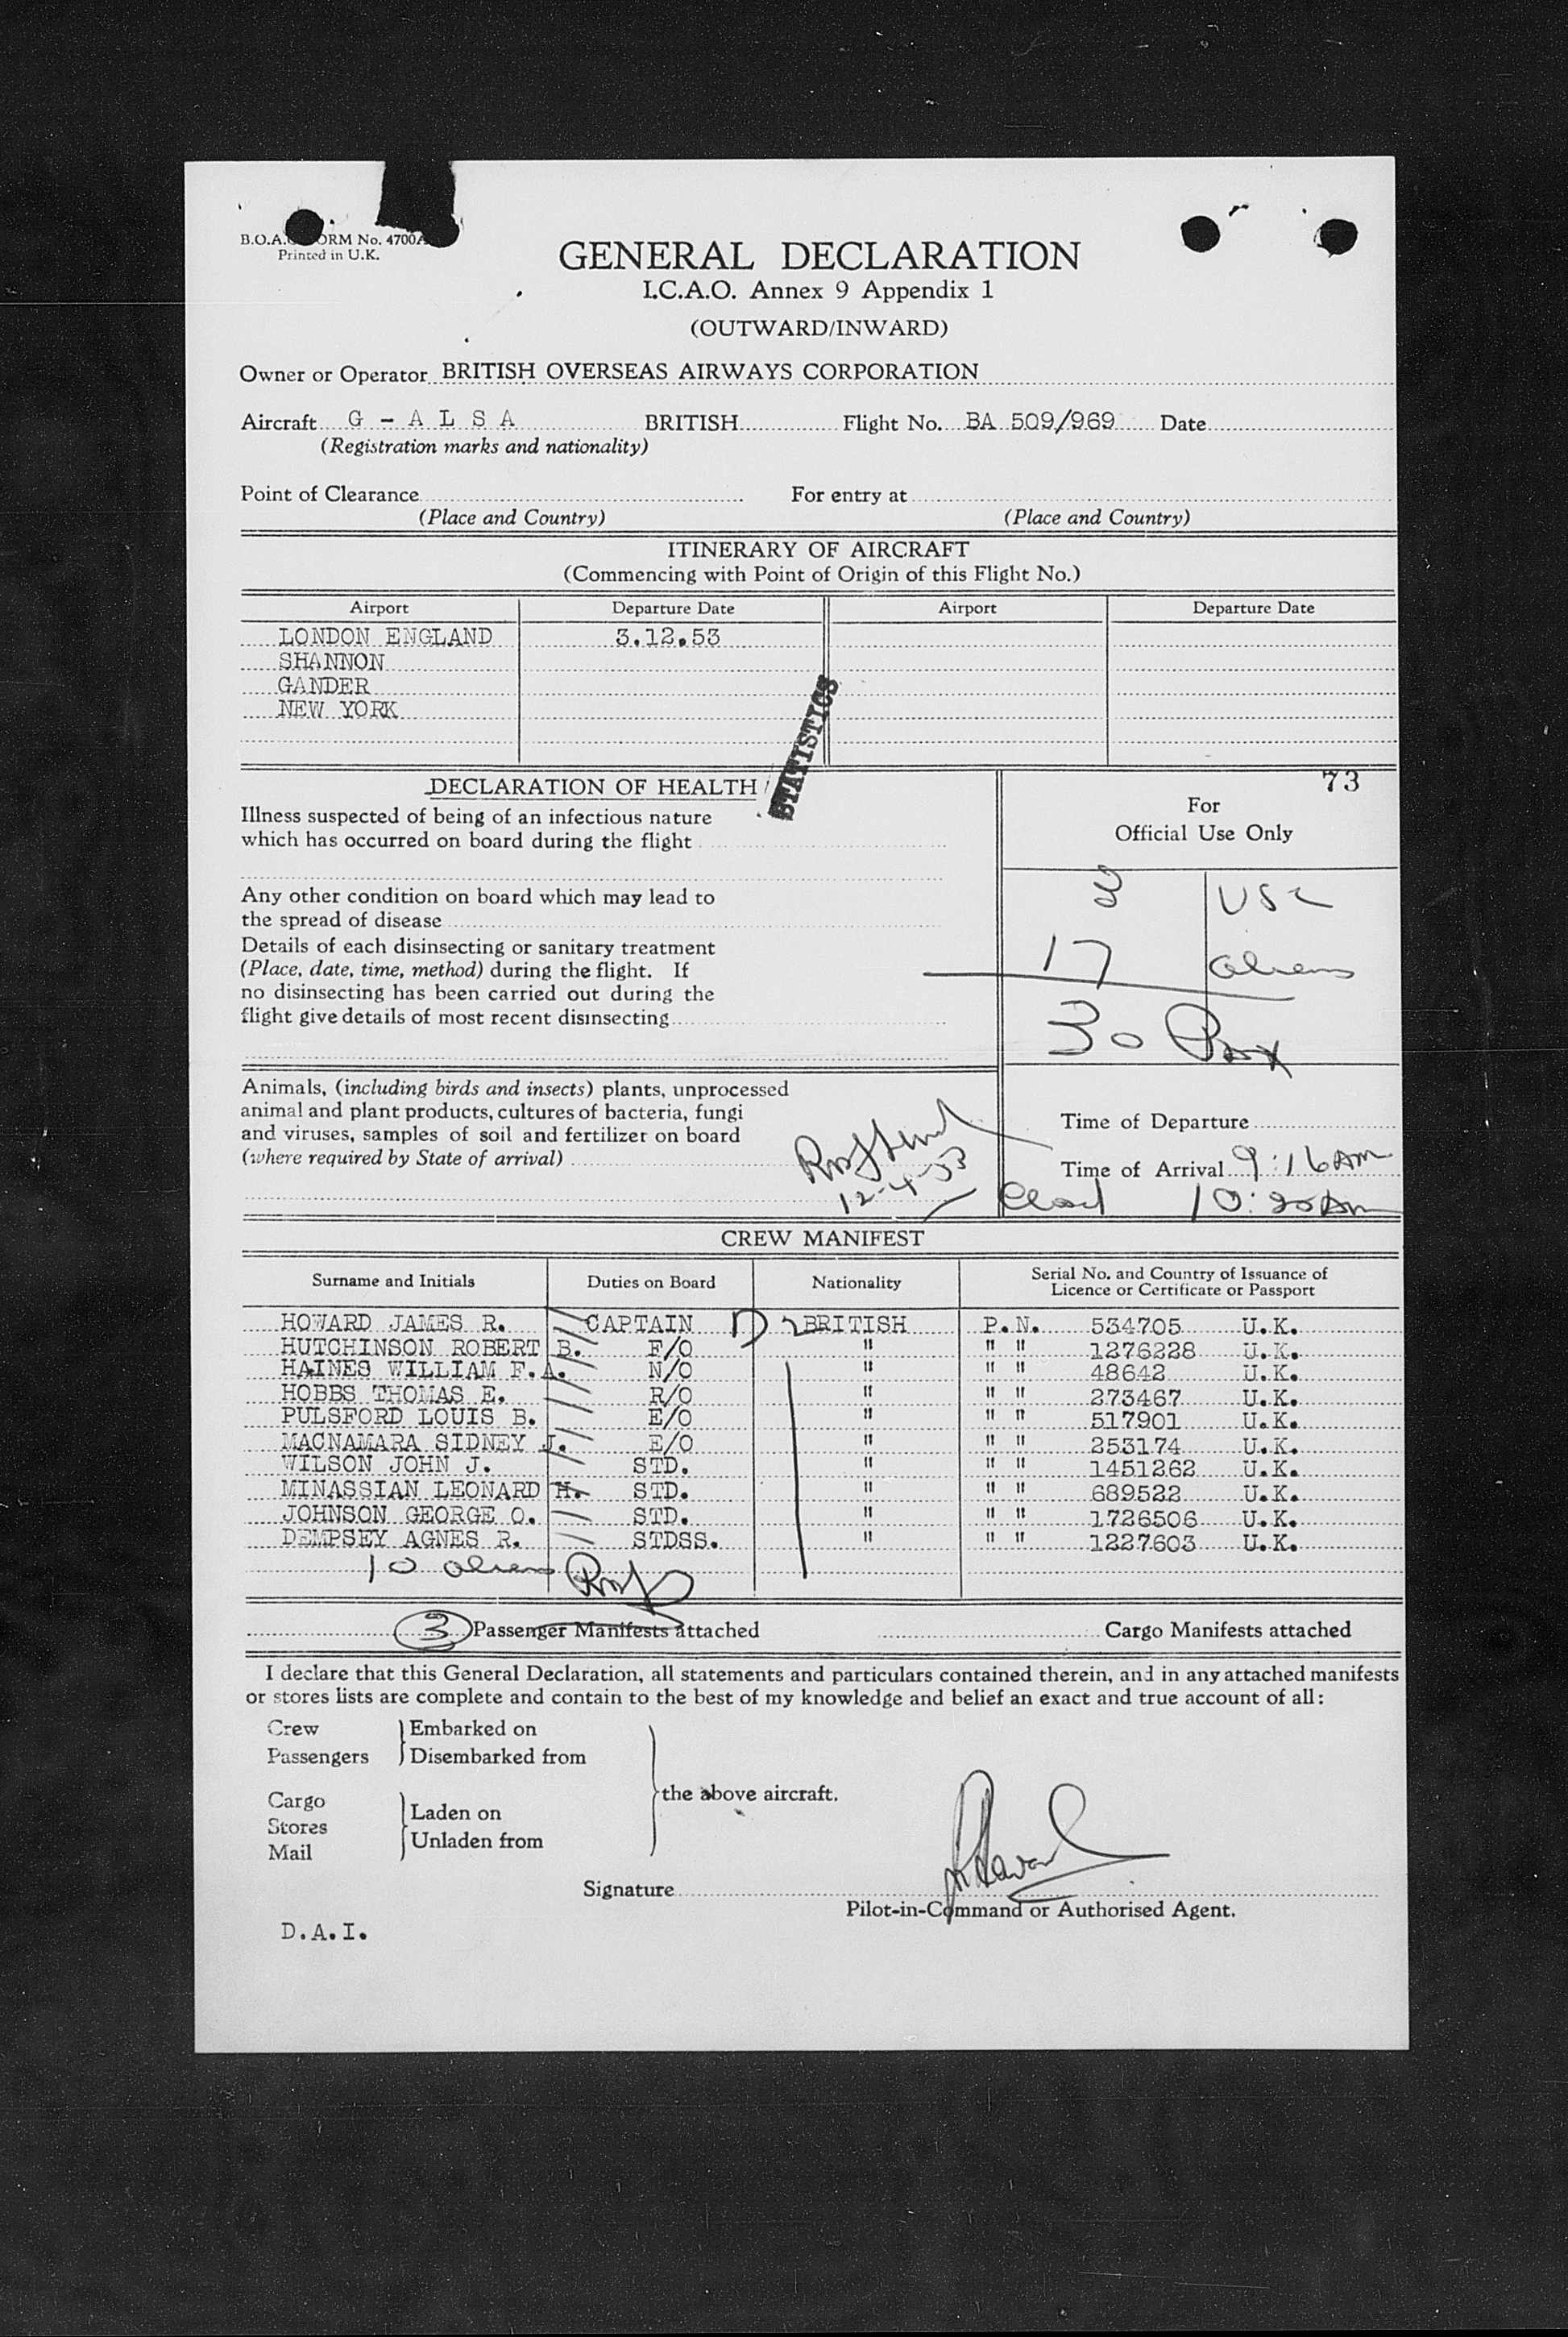 B.O.A.C. FORM No. 4700A
Printed in U.K.
GENERAL DECLARATION
I.C.A.O. Annex 9 Appendix 1
(OUTWARD/INWARD)
Owner or Operator BRITISH OVERSEAS AIRWAYS CORPORATION
Aircraft G - A L S A BRITISH Flight No. BA 509/969 Date
(Registration marks and nationality)
Point of Clearance For entry at
(Place and Country) (Place and Country)
ITINERARY OF AIRCRAFT
(Commencing with Point of Origin of this Flight No.)
Airport Departure Date Airport Departure Date
LONDON ENGLAND 3.12.53
SHANNON
GANDER
NEW YORK
STATISTICS
DECLARATION OF HEALTH
Illness suspected of being of an infectious nature
which has occurred on board during the flight
Any other condition on board which may lead to
the spread of disease
Details of each disinsecting or sanitary treatment
(Place, date, time, method) during the flight. If
no disinsecting has been carried out during the
flight give details of most recent disinsecting
73
For
Official Use Only
USC
17 aliens
30 Pax
Animals, (including birds and insects) plants, unprocessed
animal and plant products, cultures of bacteria, fungi
and viruses, samples of soil and fertilizer on board
(where required by State of arrival)
12-4-53
Time of Departure
Time of Arrival 9:16 AM
10:20 AM
CREW MANIFEST
Surname and Initials Duties on Board Nationality Serial No. and Country of Issuance of
Licence or Certificate or Passport
HOWARD JAMES R. CAPTAIN BRITISH P.N. 534705 U.K.
HUTCHINSON ROBERT B. F/O " " " 1276228 U.K.
HAINES WILLIAM F.A. N/O " " " 48642 U.K.
HOBBS THOMAS E. R/O " " " 273467 U.K.
PULSFORD LOUIS B. E/O " " " 517901 U.K.
MACNAMARA SIDNEY J. E/O " " " 253174 U.K.
WILSON JOHN J. STD. " " " 1451262 U.K.
MINASSIAN LEONARD H. STD. " " " 689522 U.K.
JOHNSON GEORGE O. STD. " " " 1726506 U.K.
DEMPSEY AGNES R. STDSS. " " " 1227603 U.K.
10 aliens
3 Passenger Manifests attached Cargo Manifests attached
I declare that this General Declaration, all statements and particulars contained therein, and in any attached manifests
or stores lists are complete and contain to the best of my knowledge and belief an exact and true account of all:
Crew Embarked on
Passengers Disembarked from
the above aircraft.
Cargo Laden on
Stores
Mail Unladen from
Signature
Pilot-in-Command or Authorised Agent.
D.A.I.